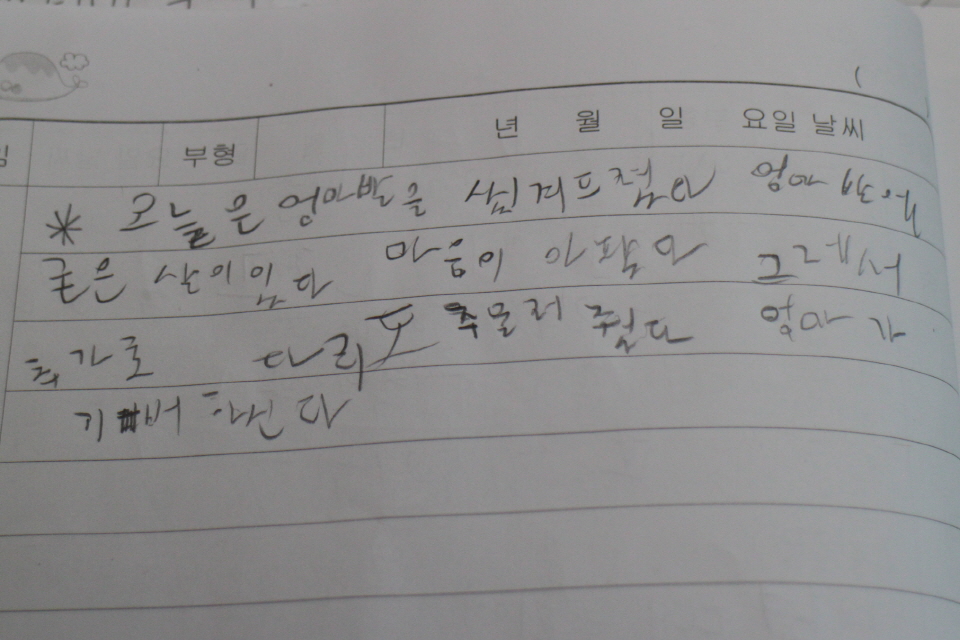 부형 년 월 일 요일 날씨
* 오늘은 엄마발을 씹겨프렸다 엄마
굳은 살이있다 마음이 아팠다 그래서
추가로 다리도 주물러 줬다 엄마가
기뻐하신다